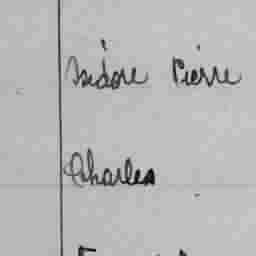 Isidore Pierre
Charles